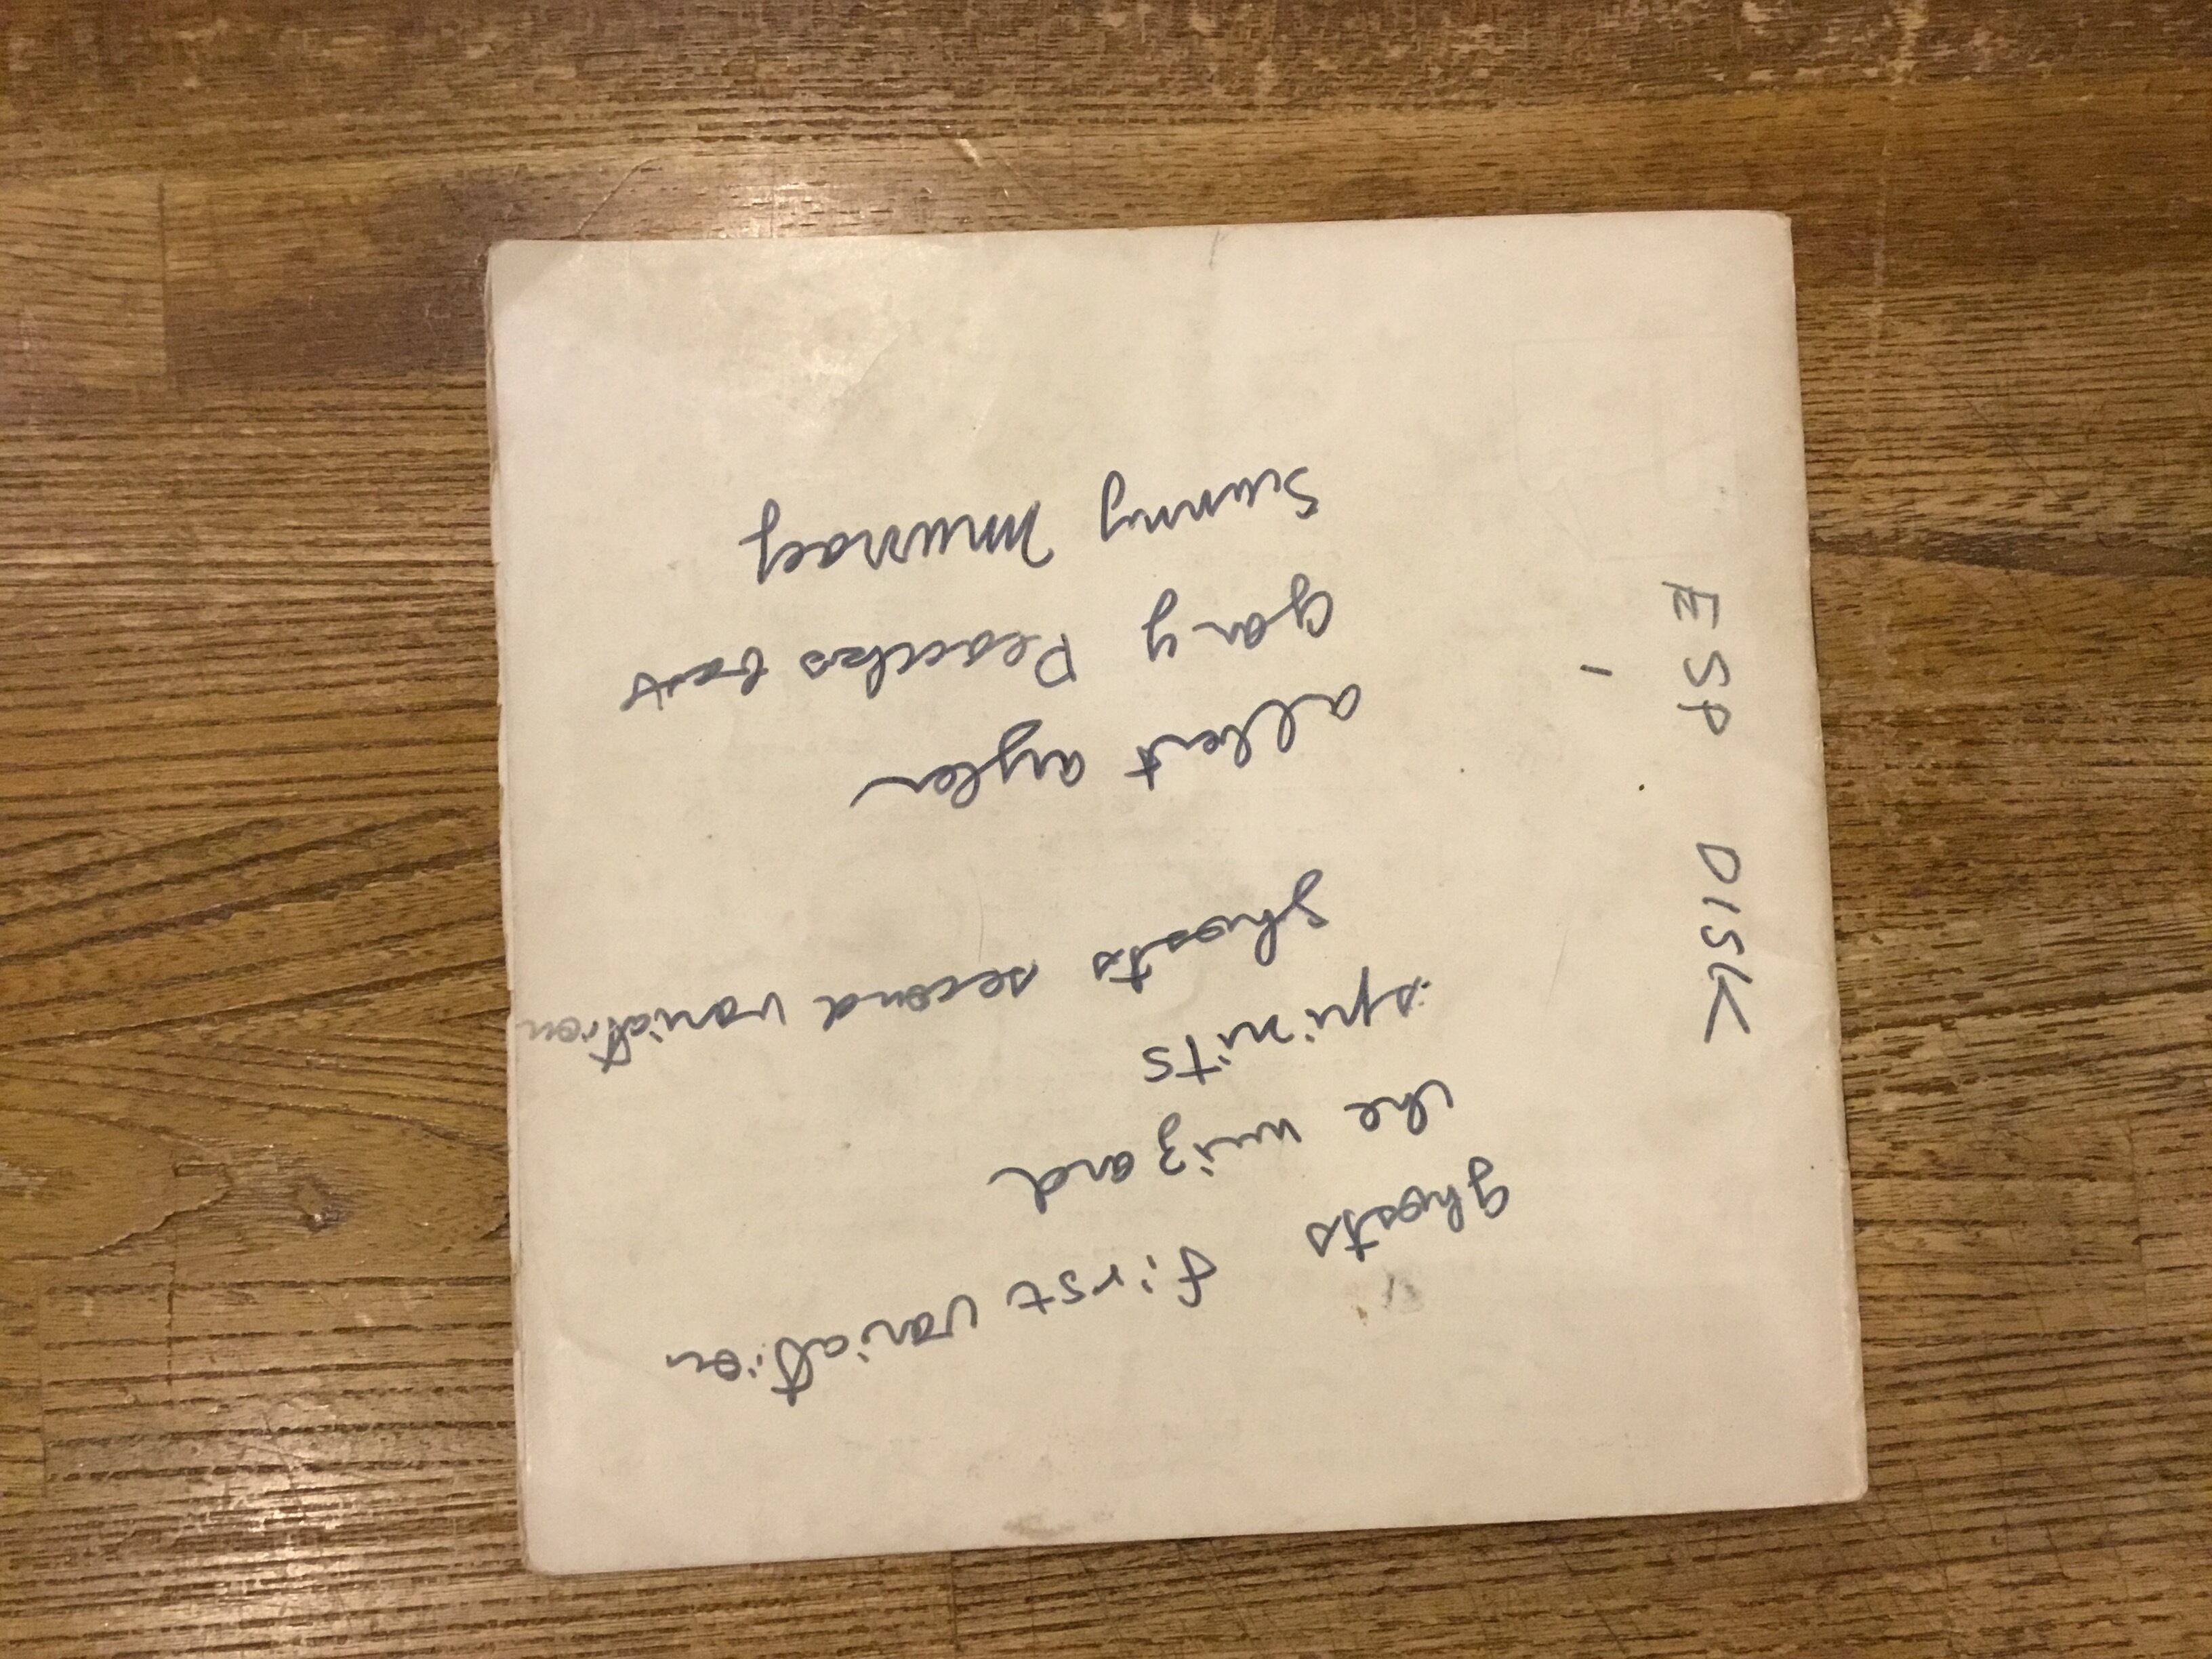 ghosts first variation
the wizard
spirits
ghosts second variation
albert ayler
gary Peacks
Sunny Murray
ESP DISK